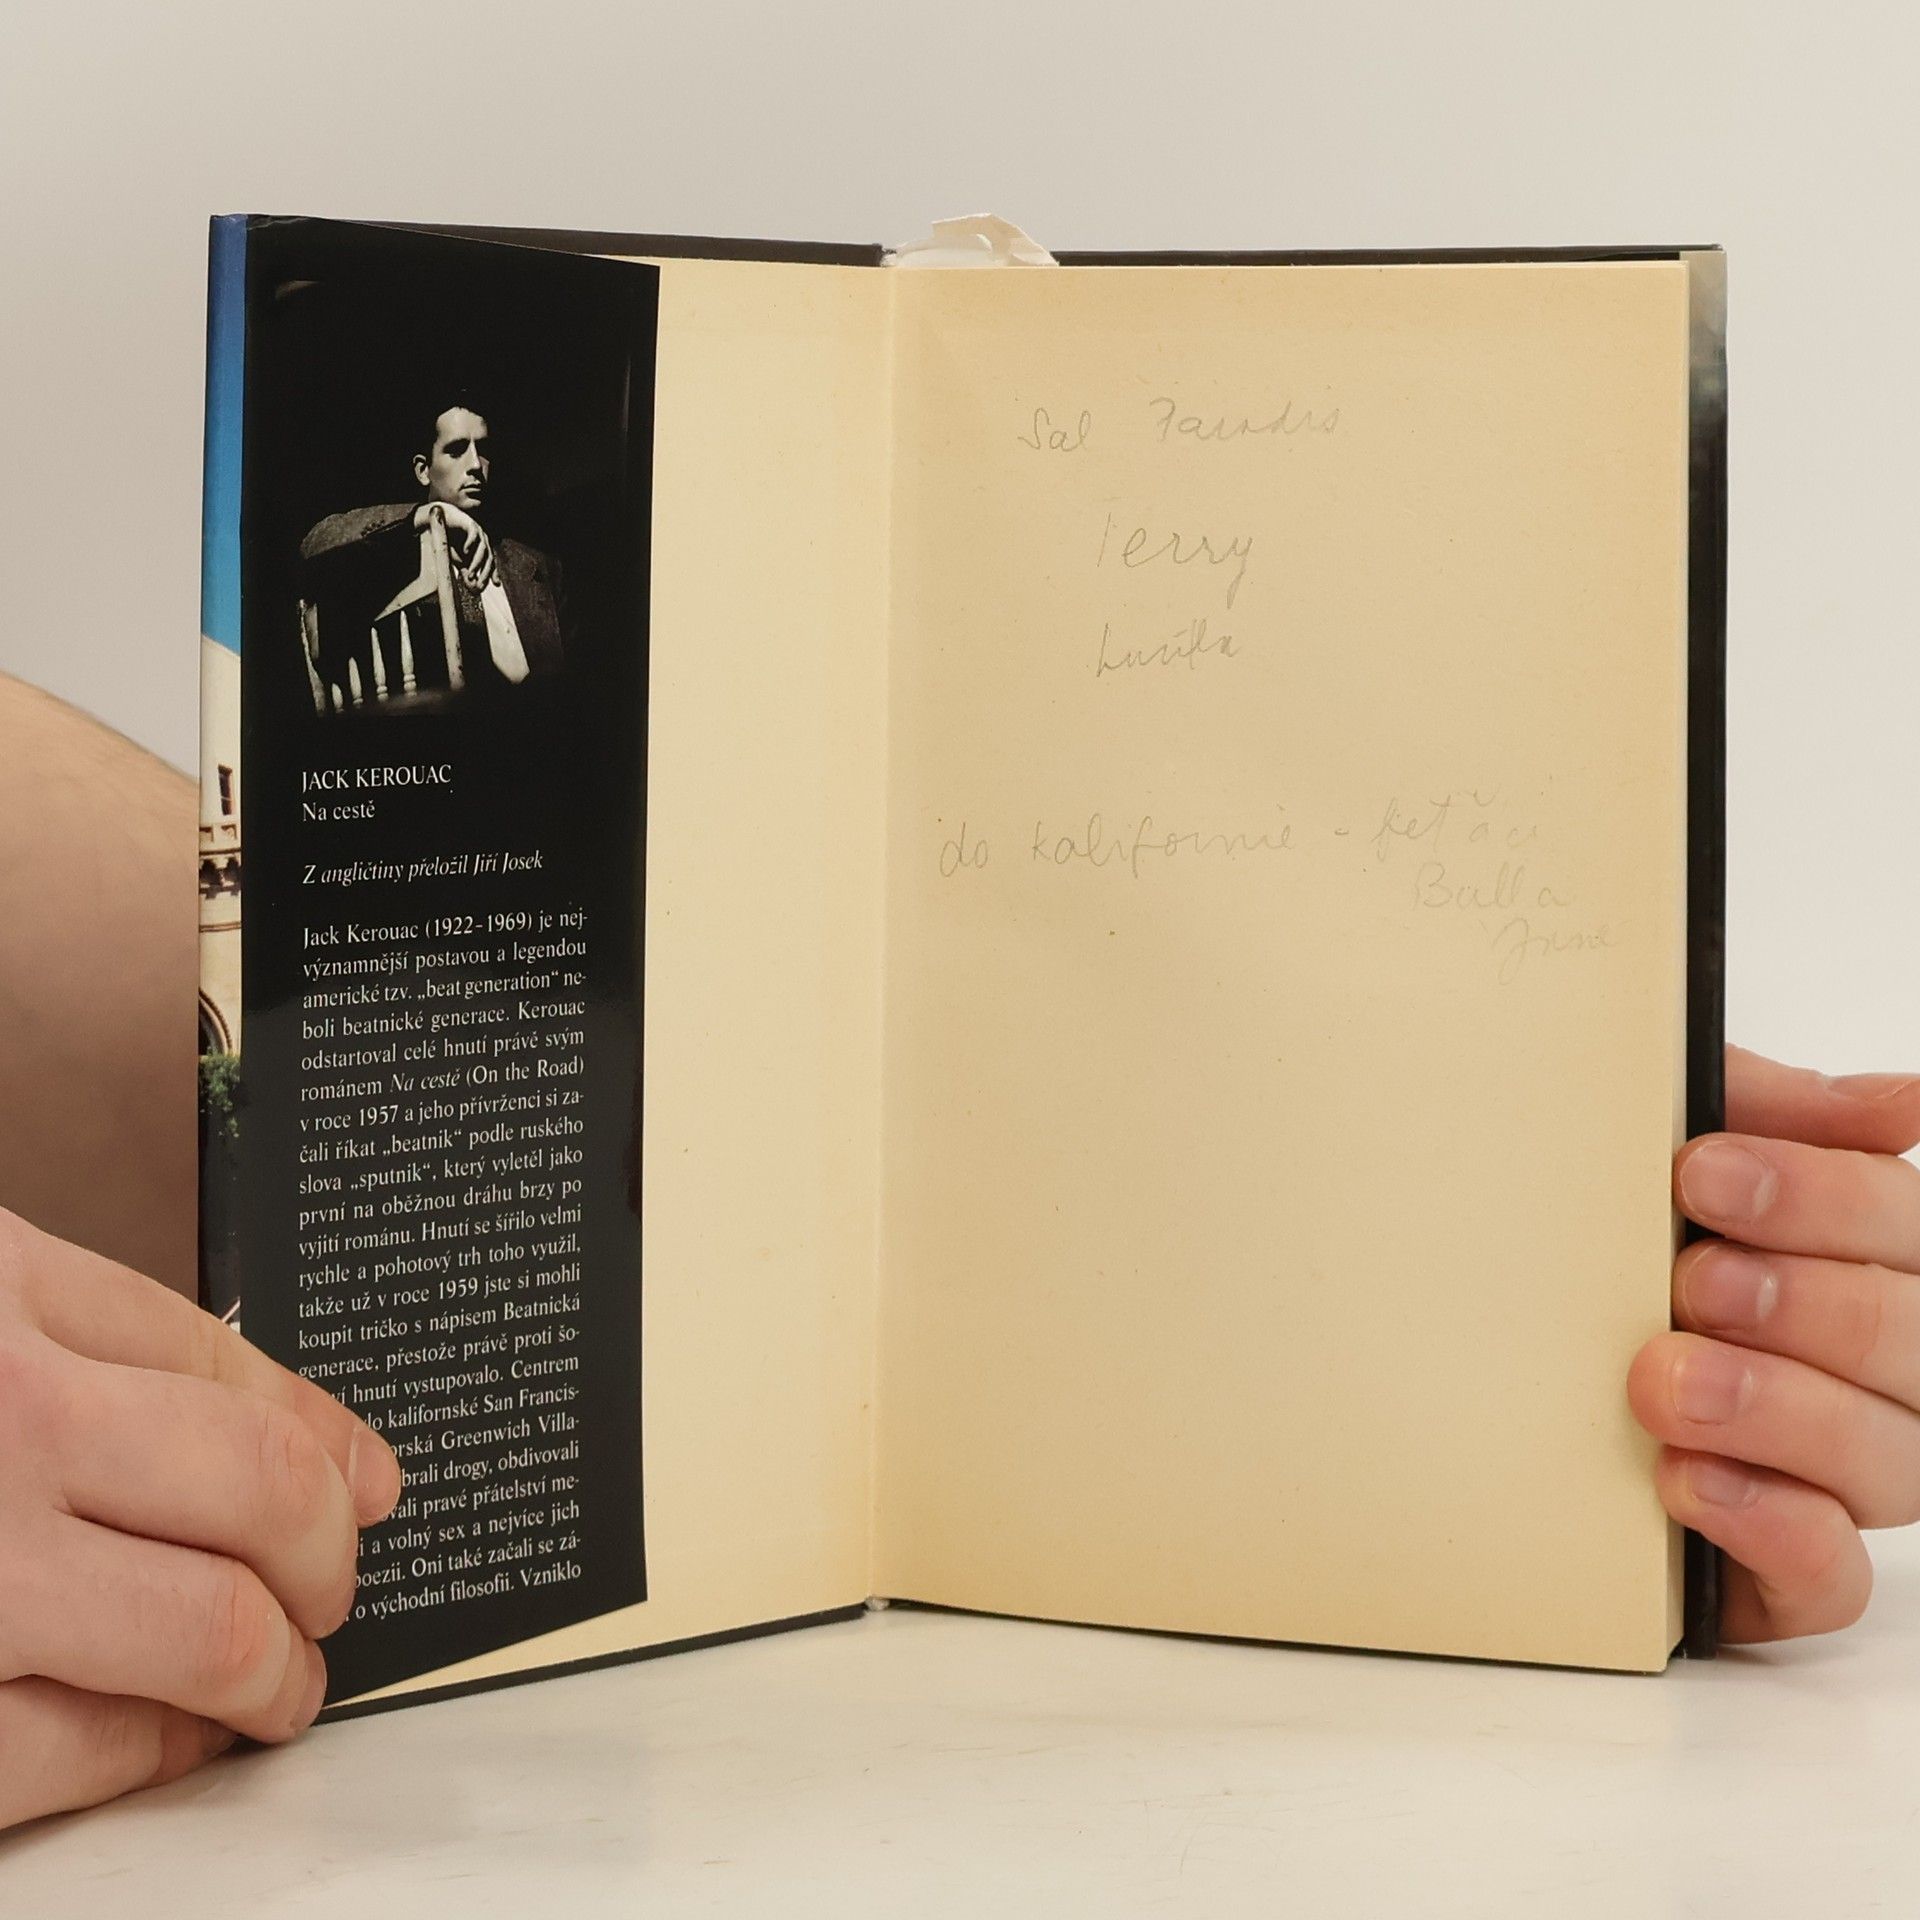 JACK KEROUAC
Na cestě
Z angličtiny přeložil Jiří Josek
Jack Kerouac (1922-1969) je nej-
významnější postavou a legendou
americké tzv. „beat generation“ ne-
boli beatnické generace. Kerouac
odstartoval celé hnutí právě svým
románem Na cestě (On the Road)
v roce 1957 a jeho přívrženci si za-
čali říkat „beatnik“ podle ruského
slova „sputnik“, který vyletěl jako
první na oběžnou dráhu brzy po
vyjití románu. Hnutí se šířilo velmi
rychle a pohotový trh toho využil,
takže už v roce 1959 jste si mohli
koupit tričko s nápisem Beatnická
generace, přestože právě proti šo-
hnutí vystupovalo. Centrem
kalifornské San Francis-
Greenwich Villa-
brali drogy, obdivovali
pravé přátelství me-
i a volný sex a nejvíce jich
poezii. Oni také začali se zá-
o východní filosofii. Vzniklo
Sal
Terry
do kalifornie -
Bull a